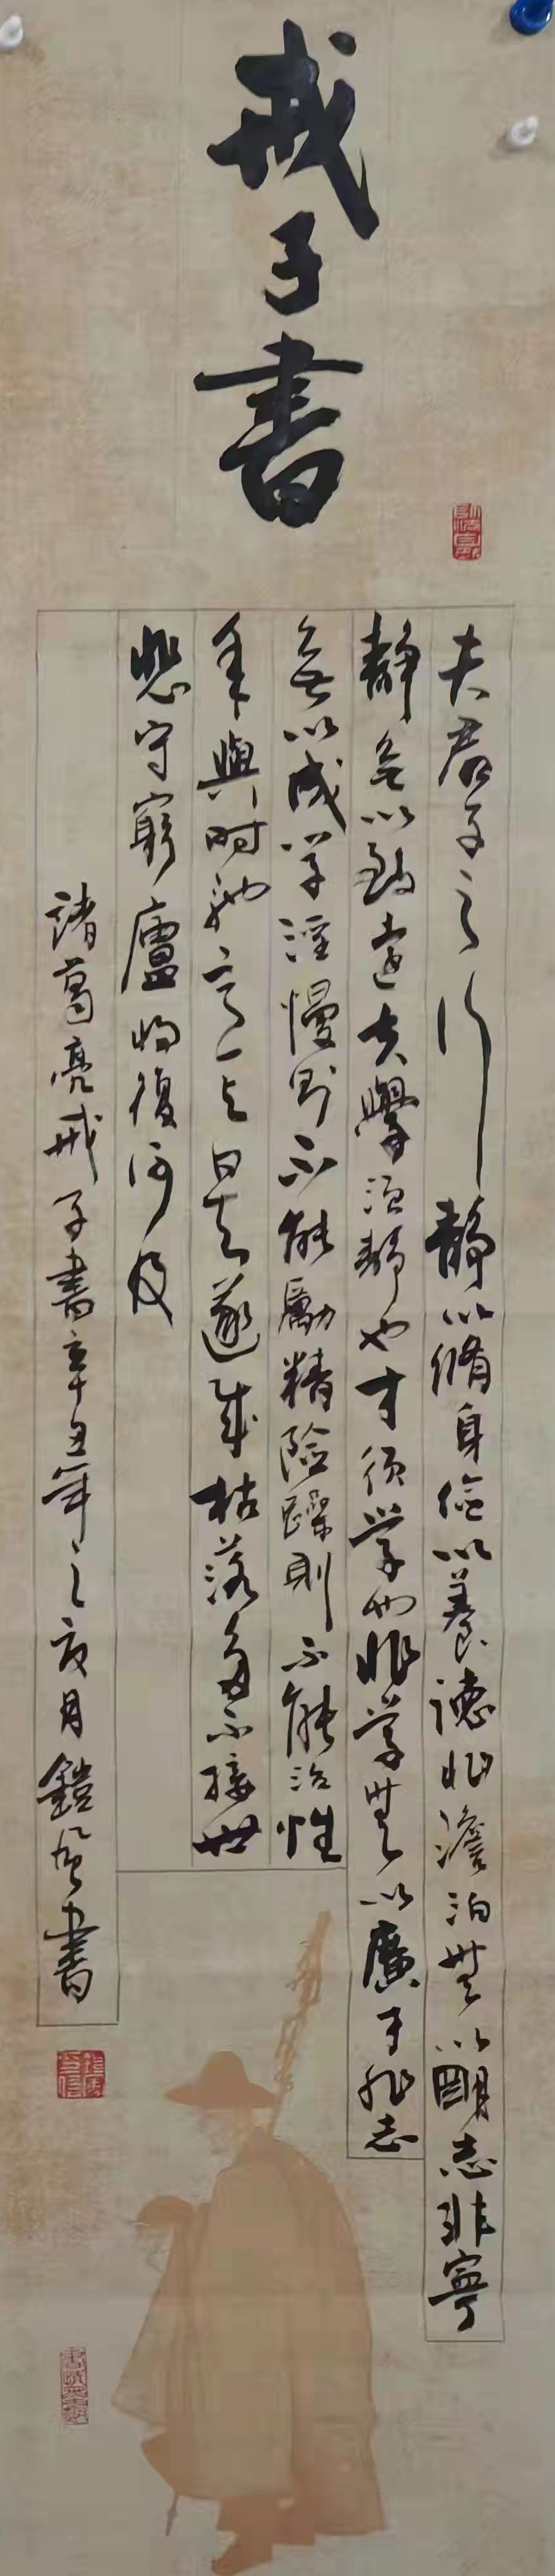 戒子書
夫君子之行静以脩身儉以養德非澹泊無以明志非寧
静無以致遠夫學須静也才須学也非学無以廣才非志
無以成学淫慢則不能勵精險躁則不能治性
年與時馳意与日去遂成枯落多不接世
悲守窮廬將復何及
諸葛亮戒子書辛丑年之夜月鎧風書